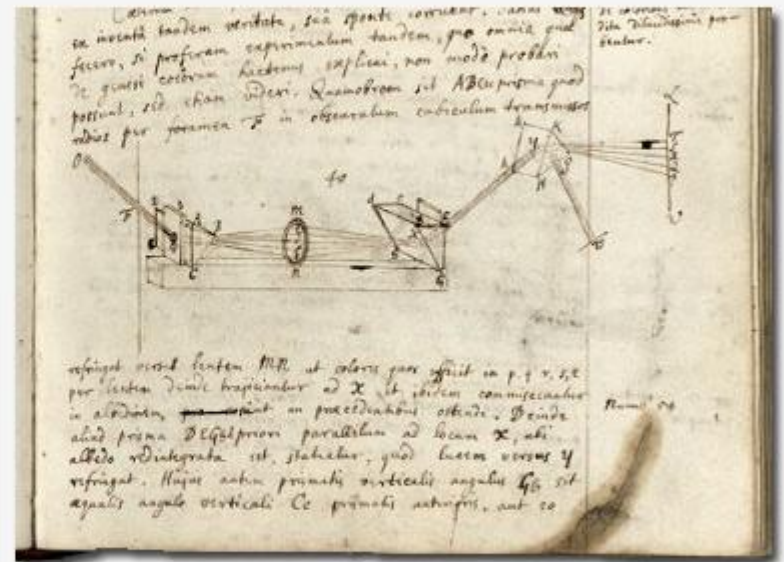 ex inventâ tandem veritate, suâ sponte corruent.
fecero, si proferam experimentum tandem, quo omnia quæ
de genesi colorum hactenus explicui, non modo probari
possunt, sed etiam videri. Quamobrem sit ABC prisma quod
radios per foramen F in obscuratum cubiculum transmissos
dita dilucidissime pro-
bentur.
40
O
F
M
N
C
G
Y
H
refringat versus lentem MN ut colores quos efficit in p, q, r, s, t
per lentem deinde trajiciantur ad X et ibidem commisceantur
in albedinem, in præcedentibus ostendi. Deinde
aliud prisma DEG priori parallelum ad locum X, ubi
albedo redintegrata est, statuatur, quod lucem versus Y
refringat. Hujus autem prismatis verticalis angulus Gg sit
æqualis angulo verticali Cc prismatis anterioris, aut eo